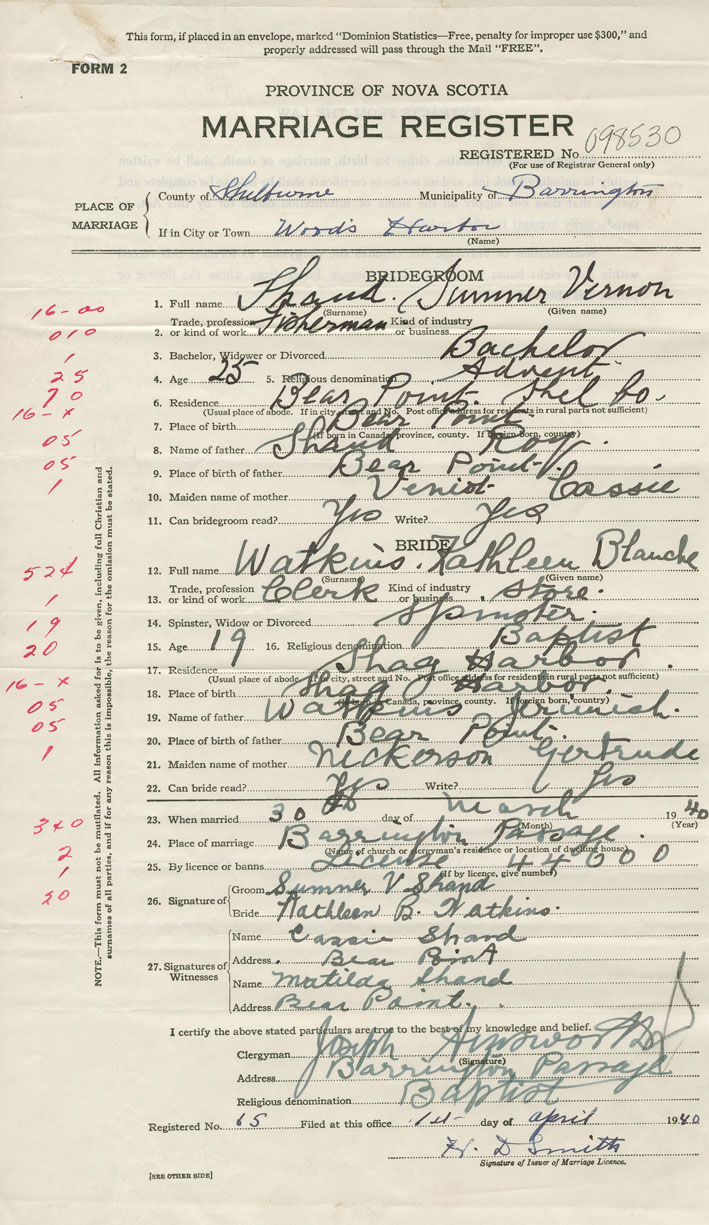 This form, if placed in an envelope, marked "Dominion Statistics—Free, penalty for improper use $300," and
properly addressed will pass through the Mail "FREE".
FORM 2
PROVINCE OF NOVA SCOTIA
MARRIAGE REGISTER
REGISTERED No. 098530
(For use of Registrar General only)
PLACE OF MARRIAGE
County of Shelburne Municipality of Barrington
If in City or Town Woods Harbor
(Name)
BRIDEGROOM
1. Full name Shand. Sumner Vernon
(Surname) (Given name)
2. Trade, profession or kind of work Fisherman Kind of industry or business
3. Bachelor, Widower or Divorced Bachelor
4. Age 25 5. Religious denomination Advent.
6. Residence Bear Point. Shel Co.
(Usual place of abode. If in city street and No. Post office address for residents in rural parts not sufficient)
7. Place of birth Bear Point.
(If born in Canada, province, county. If foreign born, country)
8. Name of father Shand Roy.
9. Place of birth of father Bear Point.
10. Maiden name of mother Veniot Cassie
11. Can bridegroom read? Yes Write? Yes
BRIDE
12. Full name Watkins. Kathleen Blanche
(Surname) (Given name)
13. Trade, profession or kind of work Clerk Kind of industry or business Store.
14. Spinster, Widow or Divorced Spinster.
15. Age 19 16. Religious denomination Baptist
17. Residence Shag Harbor.
(Usual place of abode. If in city, street and No. Post office address for resident in rural parts not sufficient)
18. Place of birth Shag Harbor.
(If born in Canada, province, county. If foreign born, country)
19. Name of father Watkins Jerimiah.
20. Place of birth of father Bear Point.
21. Maiden name of mother Nickerson Gertrude
22. Can bride read? Yes Write? Yes
23. When married 30 day of March 1940
(Month) (Year)
24. Place of marriage Barrington Passage.
(Name of church or clergyman's residence or location of dwelling house)
25. By licence or banns License 44600
(If by licence, give number)
26. Signature of
Groom Sumner V Shand
Bride Kathleen B. Watkins.
27. Signatures of Witnesses
Name Cassie Shand
Address Bear Point
Name Matilda Shand
Address Bear Point.
I certify the above stated particulars are true to the best of my knowledge and belief.
Clergyman Joseph Ainsworth
(Signature)
Address Barrington Passage
Religious denomination Baptist
Registered No. 65 Filed at this office 1st day of April 1940
H. D Smith
Signature of Issuer of Marriage Licence.
[SEE OTHER SIDE]
NOTE.—This form must not be mutilated. All information asked for is to be given, including full Christian and
surnames of all parties, and if for any reason this is impossible, the reason for the omission must be stated.
16-00
010
1
25
70
16-x
05
05
1
524
1
19
20
16-x
05
05
1
340
2
1
20